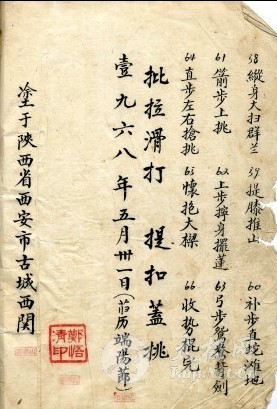 58縱身大扫群兰 59提膝推山 60补步直坨滩地
61箭步上挑 62上步擰身擺蓮 63弓步鴛鴦挂劍
64直步左右搶挑 65懷抱大樑 66收势棍完
批拉滑打 提扣蓋挑
壹九六八年五月卅一日(旧历端陽節)
塗于陝西省西安市古城西関
鄭悟清印